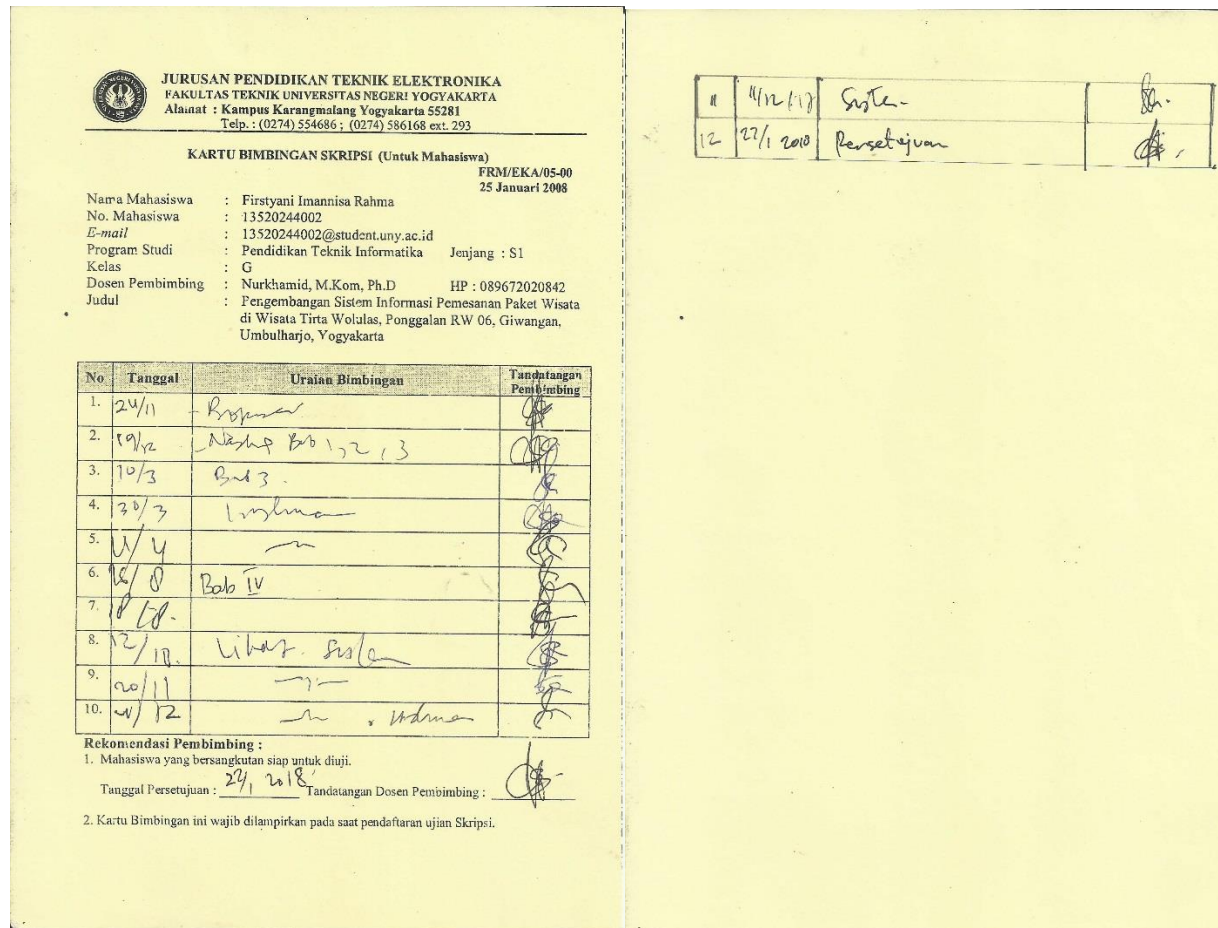 JURUSAN PENDIDIKAN TEKNIK ELEKTRONIKA
FAKULTAS TEKNIK UNIVERSITAS NEGERI YOGYAKARTA
Alamat : Kampus Karangmalang Yogyakarta 55281
Telp. : (0274) 554686 ; (0274) 586168 ext. 293
KARTU BIMBINGAN SKRIPSI (Untuk Mahasiswa)
FRM/EKA/05-00
25 Januari 2008
Nama Mahasiswa : Firstyani Imannisa Rahma
No. Mahasiswa : 13520244002
E-mail : 13520244002@student.uny.ac.id
Program Studi : Pendidikan Teknik Informatika Jenjang : S1
Kelas : G
Dosen Pembimbing : Nurkhamid, M.Kom, Ph.D HP : 089672020842
Judul : Pengembangan Sistem Informasi Pemesanan Paket Wisata
di Wisata Tirta Wolulas, Ponggalan RW 06, Giwangan,
Umbulharjo, Yogyakarta
No Tanggal Uraian Bimbingan Tandatangan
Pembimbing
1. 24/11
2. 19/12 Bab 1, 2, 3
3. 10/3 Bab 3.
4. 30/3
5.
6. Bab IV
7.
8. 12/10. Lihat Sistem
9. 20/11
10.
Rekomendasi Pembimbing :
1. Mahasiswa yang bersangkutan siap untuk diuji.
Tanggal Persetujuan : 22/1 2018 Tandatangan Dosen Pembimbing :
2. Kartu Bimbingan ini wajib dilampirkan pada saat pendaftaran ujian Skripsi.
11 11/12/17 Sistem
12 22/1 2018 Persetujuan